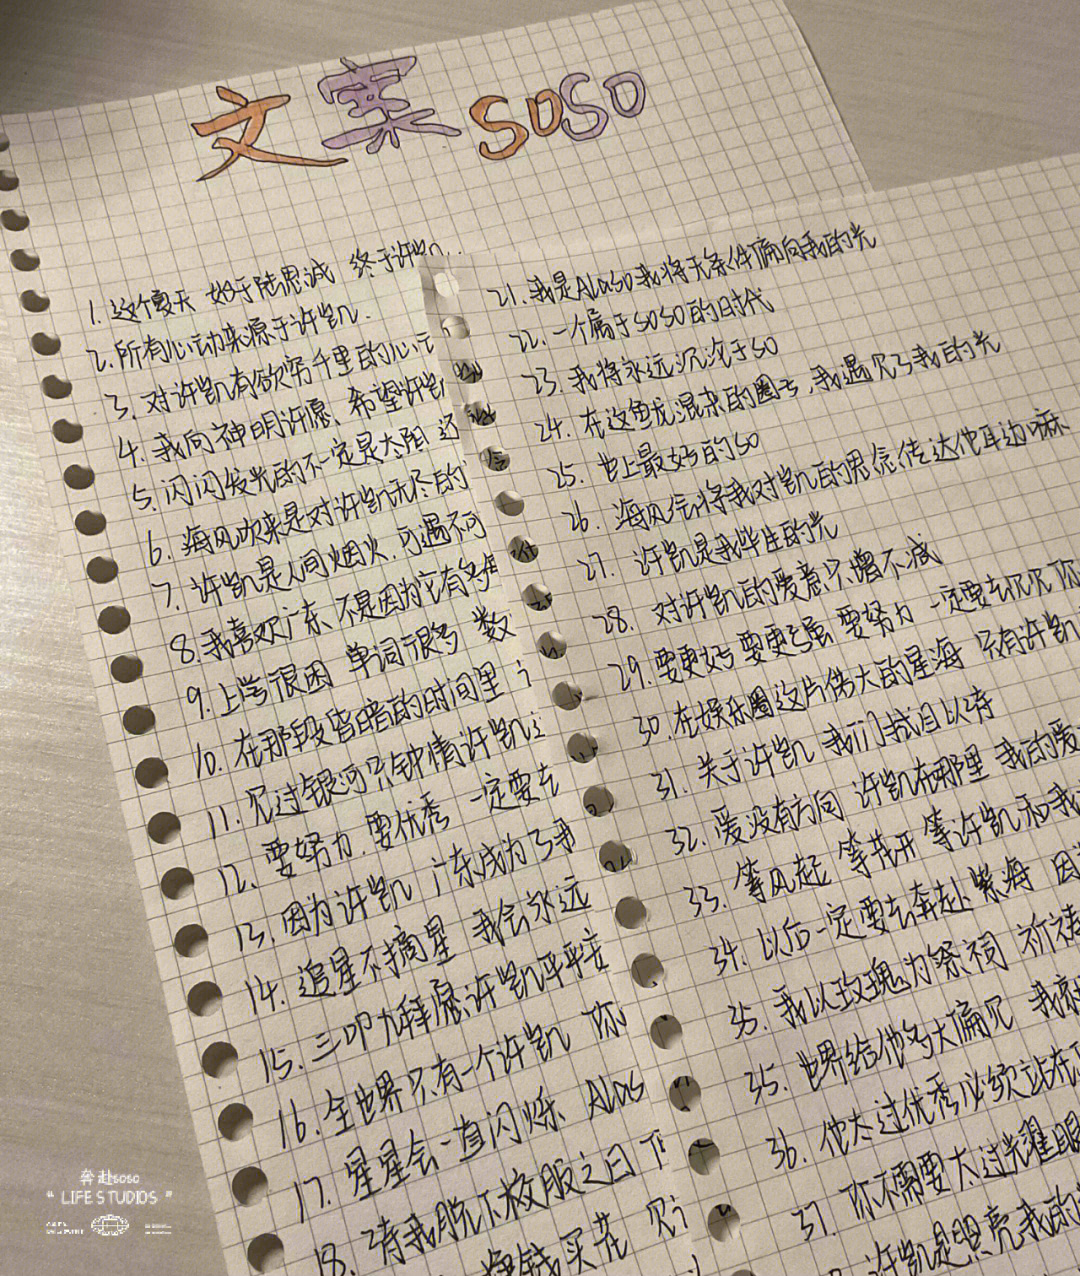 文案 SOSO
1. 这个夏天 始于陆思诚 终于许凯
2. 所有心动来源于许凯.
3. 对许凯有欲穷千里的心
4. 我向神明许愿、希望许凯
5. 闪闪发光的不一定是太阳 还
6. 海风吹来是对许凯无尽的
7. 许凯是人间烟火.可遇不可
8. 我喜欢广东、不是因为它有多
9. 上学很困 单词很多 数
10. 在那段昏暗的时间里
11. 见过银河只钟情许凯
12. 要努力.要优秀 一定要去
13. 因为许凯 广东成为了我
14. 追星不摘星 我会永远
15. 三叩九拜愿许凯平平安
16. 全世界只有一个许凯 你
17. 星星会一直闪烁 ALas
18. 待我脱下校服之日
挣钱买花
21. 我是ALaso我将无条件偏向我的光
22. 一个属于SOSO的时代
23. 我将永远沉沦于SO
24. 在这鱼龙混杂的圈子,我遇见了我的光
25. 世上最好的SO
26. 海风信将我对凯的思念传达他耳边嘛
27. 许凯是我毕生的光
28. 对许凯的爱意只增不减
29. 要更好 要更强 要努力 一定要去见见你
30. 在娱乐圈这片伟大的星海 只有许凯
31. 关于许凯 我们拭目以待
32. 爱没有方向 许凯在那里 我的爱
33. 等风起 等花开 等许凯和我
34. 以后一定要去奔赴 紫海 因
35. 我以玫瑰为祭祠 祈祷
35. 世界给他多大偏见 我就
36. 他太过优秀必须站在
37. 你不需要太过光耀眼
许凯是照亮我的
奔赴soso
" LIFE STUDIOS "